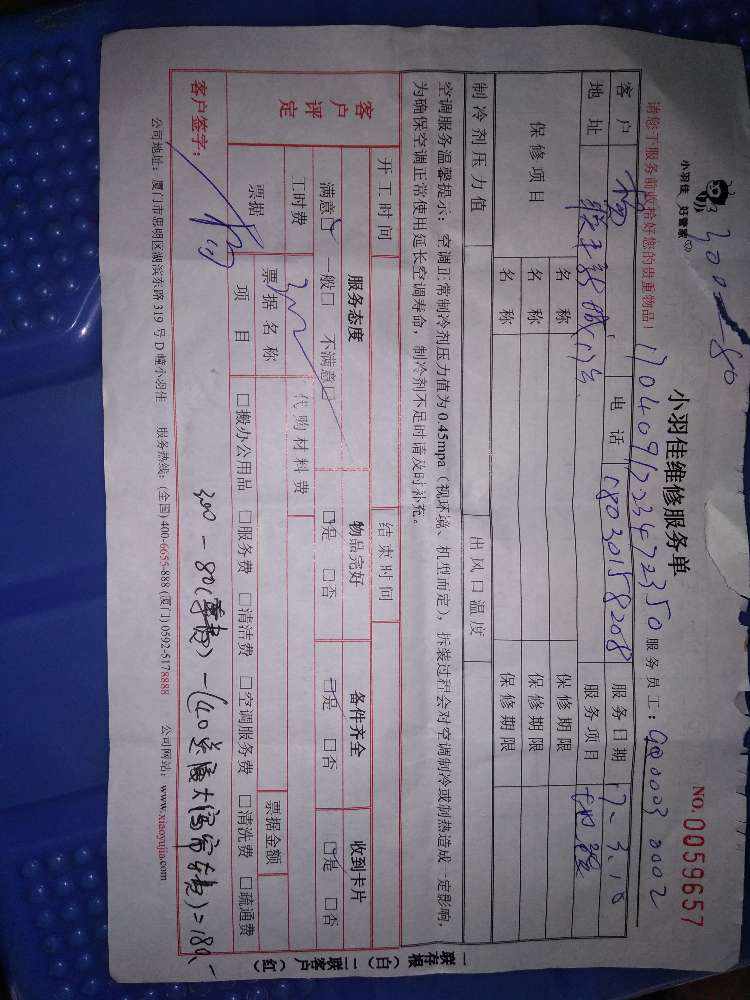 小羽佳 好管家
300-80
小羽佳维修服务单
NO.0059657
请您于服务前收拾好您的贵重物品!
17040917223472350
服务员工:
0003 0002
客户
电话
18030158208
服务日期
17.3.18
地址
服务项目
保修项目
名称
保修期限
名称
保修期限
名称
保修期限
制冷剂压力值
出风口温度
空调服务温馨提示:空调正常制冷剂压力值为0.45mpa(视环境、机型而定),拆装过程会对空调制冷或制热造成一定影响,
为确保空调正常使用延长空调寿命,制冷剂不足时请及时补充。
开工时间
结束时间
客户评定
服务态度
物品完好
备件齐全
收到卡片
满意□ 一般□ 不满意□
□是 □否
□是 □否
□是 □否
工时费
300
代购材料费
票据
票据名称
票据金额
项目
□搬办公用品 □服务费 □清洁费 □空调服务费 □清洗费 □疏通费
客户签字:
300-80
=180.-
公司地址:厦门市思明区湖滨东路319号D幢小羽佳 服务热线:(全国)400-6655-888 (厦门)0592-5178888 公司网站:www.xiaoyujia.com
一联存根(白)二联客户(红)